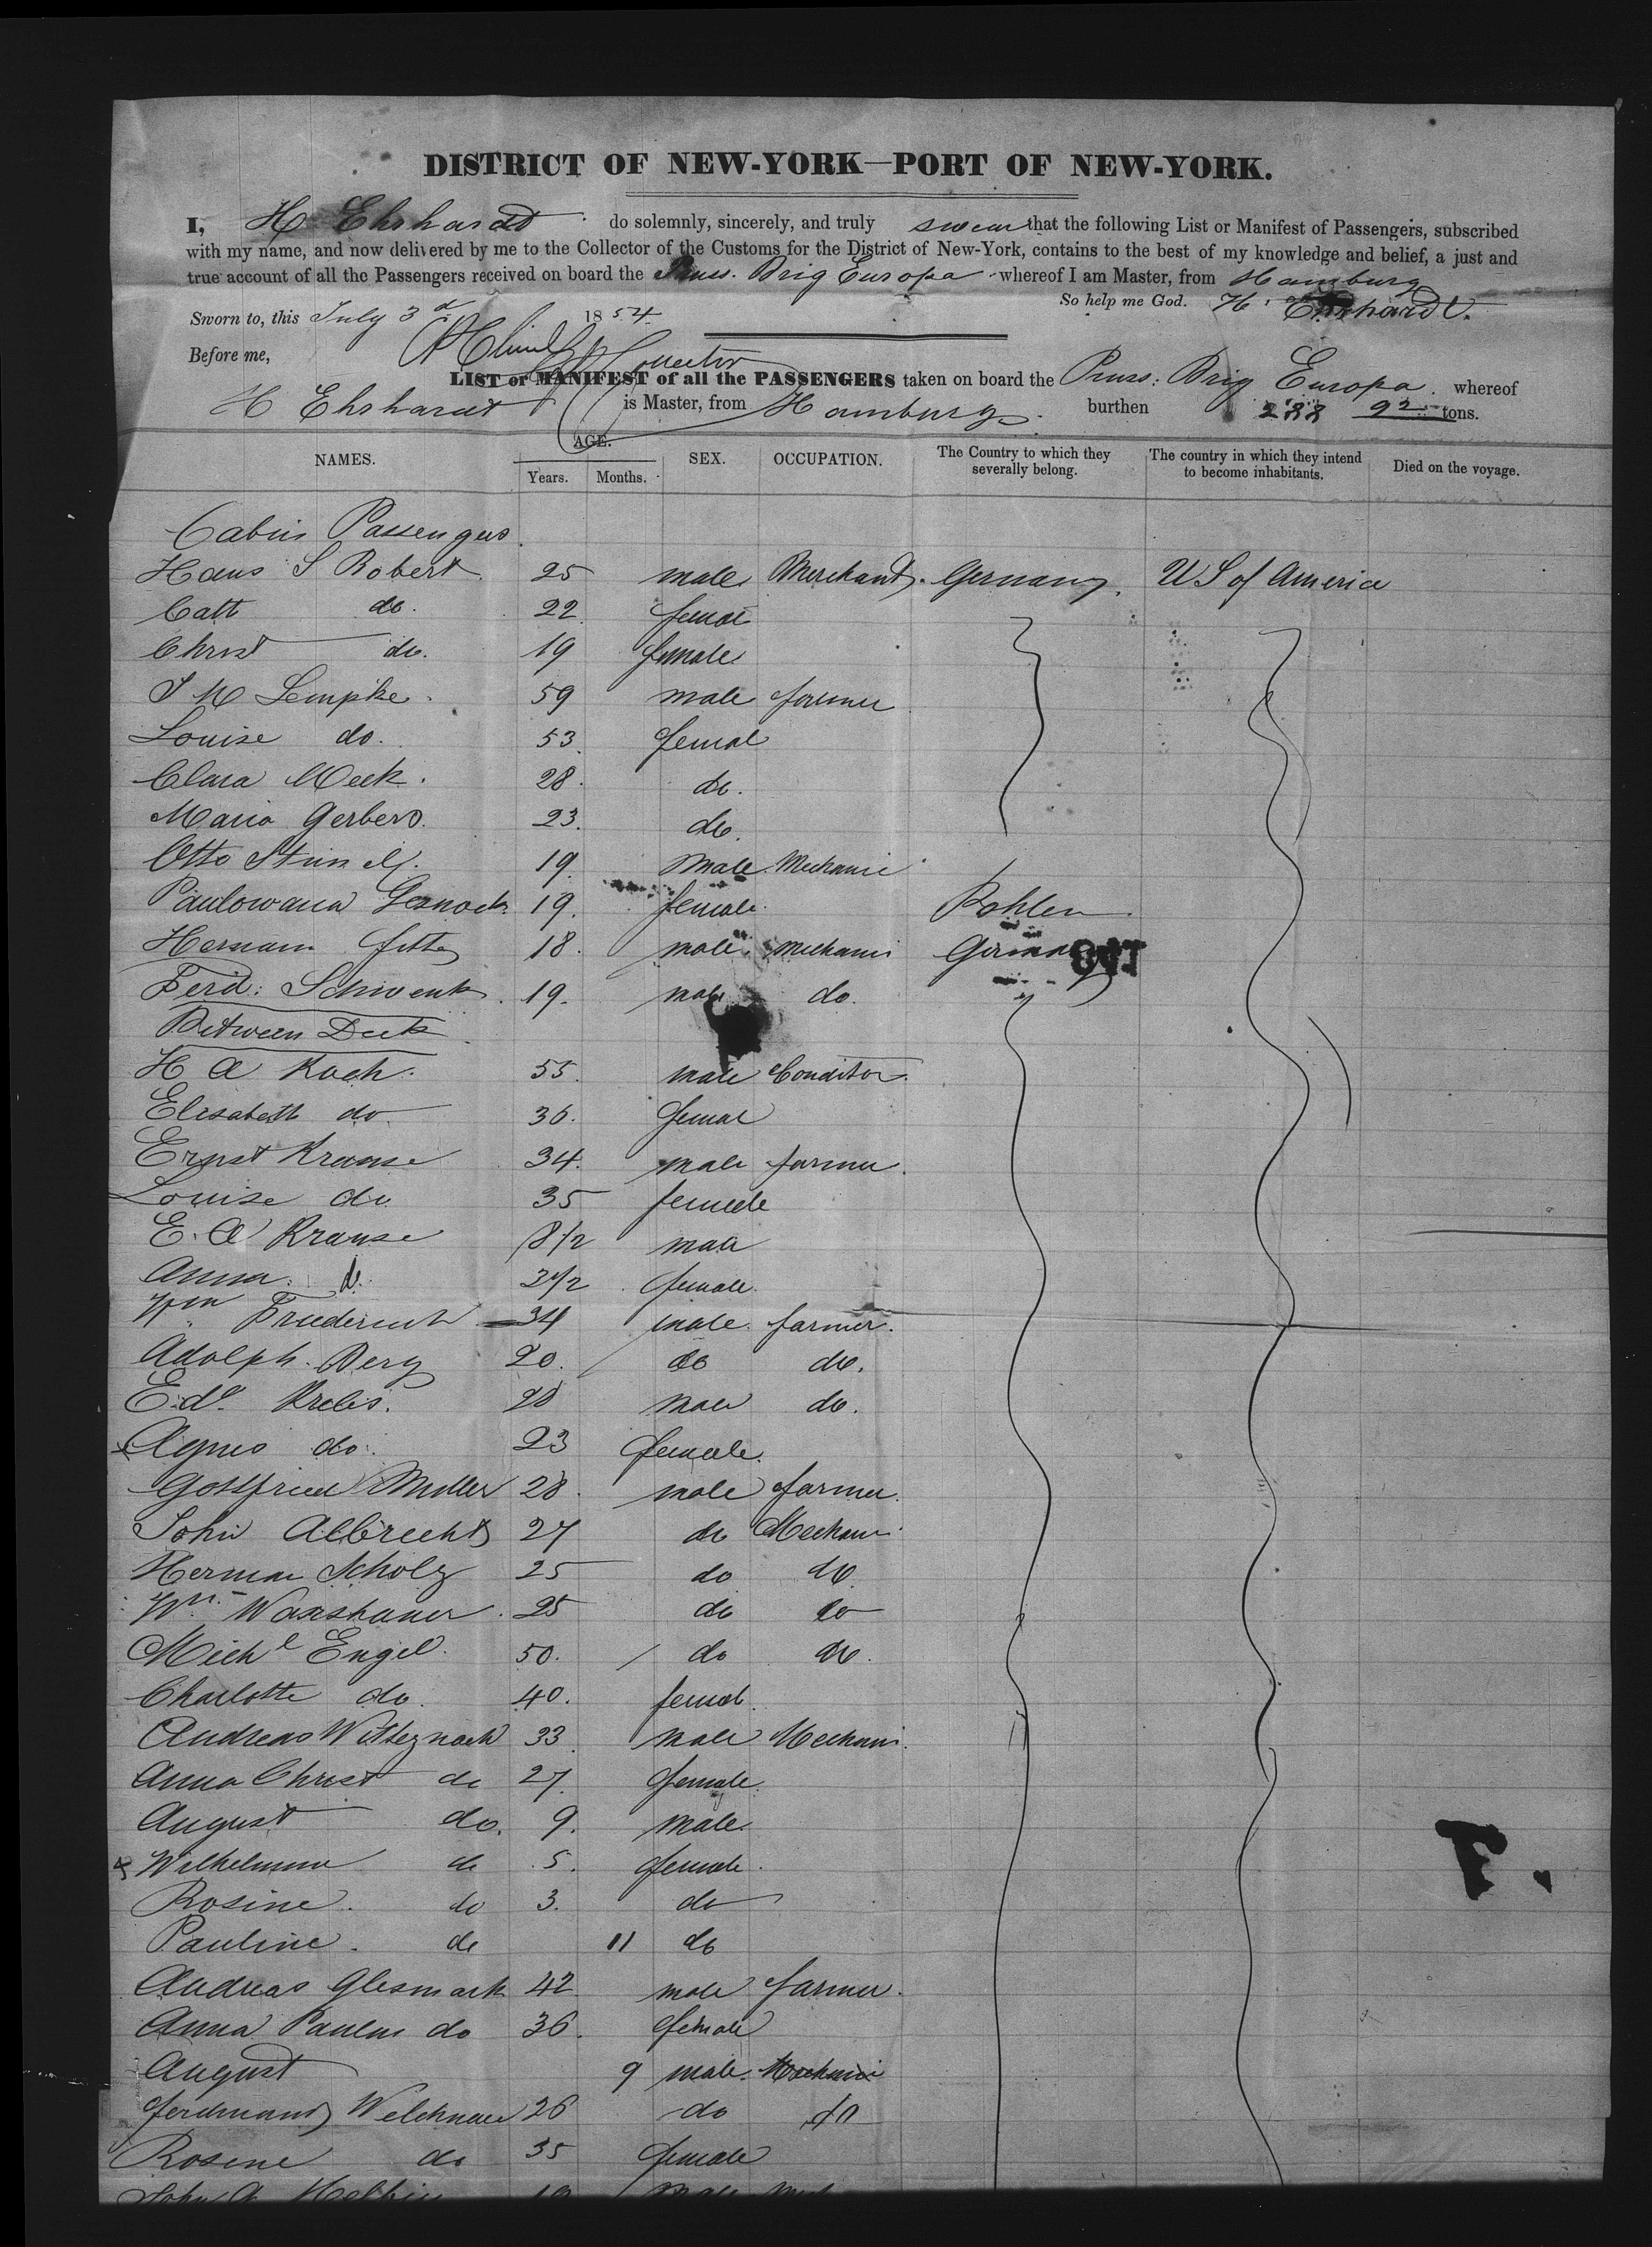 DISTRICT OF NEW-YORK—PORT OF NEW-YORK.
I, H Ehrhardt do solemnly, sincerely, and truly swear that the following List or Manifest of Passengers, subscribed
with my name, and now delivered by me to the Collector of the Customs for the District of New-York, contains to the best of my knowledge and belief, a just and
true account of all the Passengers received on board the Pruss. Brig Europa whereof I am Master, from Hamburg
So help me God. H. Ehrhardt.
Sworn to, this July 3d 1854.
Before me, Collector
LIST or MANIFEST of all the PASSENGERS taken on board the Pruss: Brig Europa. whereof
H Ehrhardt is Master, from Hamburg. burthen 288 92 tons.
NAMES. AGE. Years. Months. SEX. OCCUPATION. The Country to which they severally belong. The country in which they intend to become inhabitants. Died on the voyage.
Cabin Passengers.
Hans S Robert. 25 male Merchant. Germany. U S of America
Cath do. 22. femal
Christ do. 19 female
J M Lempke. 59 male farmer
Louise do. 53. femal
Clara Meek. 28. do.
Maria Gerbers. 23. do.
Otto 19. male Mechanic
19. female. Pohlen.
Hermann 18. male mechanic Germany
Ferd: Schwenk. 19. male do.
Between Deck
H A Koch. 55. male Conditor.
Elisabeth do 36. femal
Ernst Krause 34. male farmer.
Louise do. 35 female
E. A Krause 8 1/2 male
Anna. do. 2 1/2 female.
Wm. Friederich 34 male. farmer.
Adolph. Berg 20. do do.
Edd. Krebs. 28 male do.
Agnes do. 23 female.
Gottfried Muller 28. male farmer.
John Albrecht 27 do Mechani
Herman Scholz 25 do do.
Wm. Warshauer. 25 do do
Michl Engel. 50. do do.
Charlotte do. 40. femal.
Andreas Witteznach 33. male Mechani.
Anna Christ do 27. female.
August do. 9. male.
Wilhelmine do 5. female.
Rosine. do 3. do
Pauline. do 11 do
Andreas Glesmark 42. male farmer.
Anna Paulus do 36. female
August 9 male. Mechanic
Ferdinand 26 do do
Rosene do 35 female
John
F.